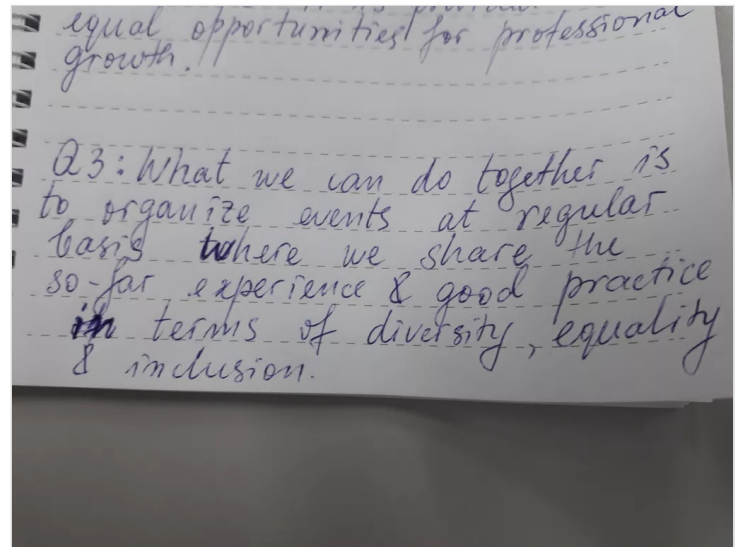 equal opportunities for professional
growth.
Q3: What we can do together is
to organize events at regular
basis where we share the
so-far experience & good practice
in terms of diversity, equality
& inclusion.